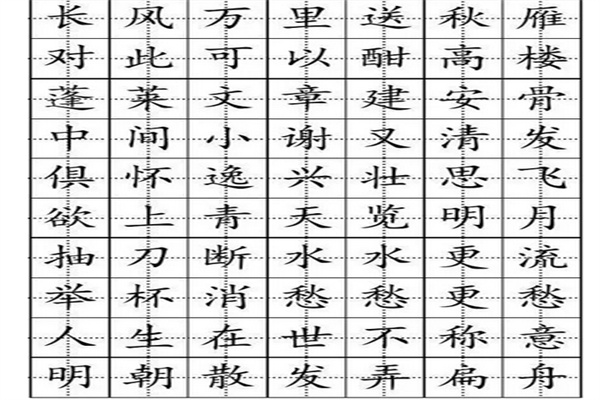 长风万里送秋雁
对此可以酣高楼
蓬莱文章建安骨
中间小谢又清发
俱怀逸兴壮思飞
欲上青天览明月
抽刀断水水更流
举杯消愁愁更愁
人生在世不称意
明朝散发弄扁舟